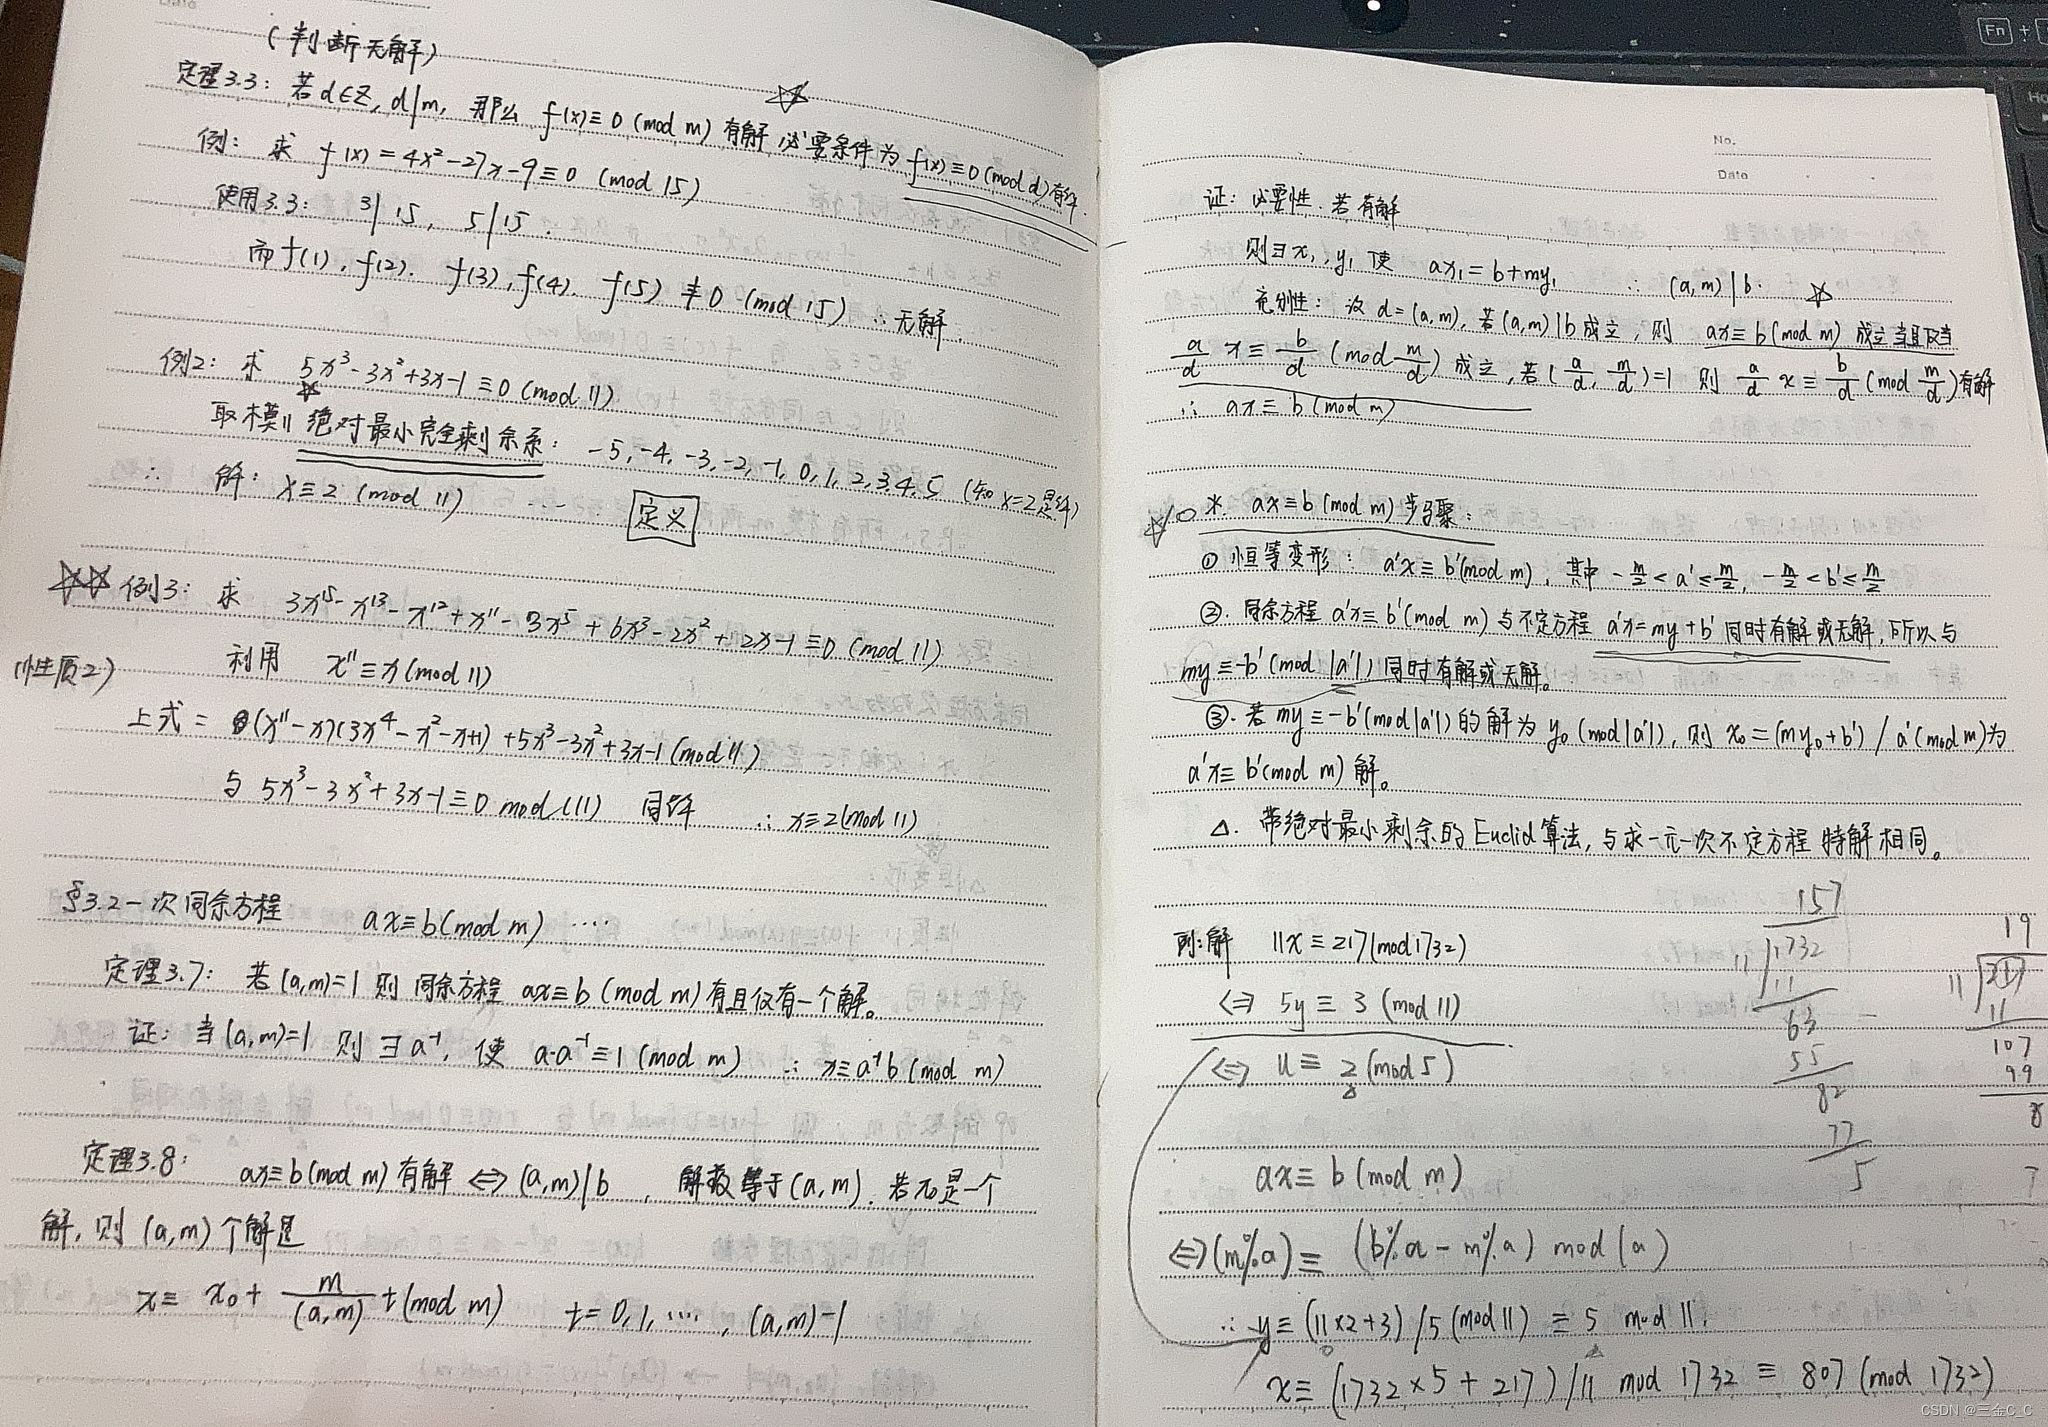 (判断无解)
定理3.3: 若d∈Z, d|m, 那么 f(x)≡0 (mod m) 有解,必要条件为 f(x)≡0 (mod d)有解.
例: 求 f(x)=4x²-27x-9≡0 (mod 15)
使用3.3: 3|15, 5|15.
而f(1), f(2). f(3), f(4). f(5) ≢0 (mod 15) ∴无解.
例2: 求 5x³-3x²+3x-1≡0 (mod 11)
取模11 绝对最小完全剩余系: -5,-4,-3,-2,-1,0,1,2,3,4,5 (知x=2是解)
∴ 解: x≡2 (mod 11)
定义
例3: 求 3x¹⁵-x¹³-x¹²+x¹¹-3x⁵+6x³-2x²+2x-1≡0 (mod 11)
(性质2) 利用 x¹¹≡x (mod 11)
上式= (x¹¹-x)(3x⁴-x²-x+1)+5x³-3x²+3x-1 (mod 11)
与 5x³-3x²+3x-1≡0 mod (11) 同解 ∴ x≡2(mod 11)
§3.2 一次同余方程 ax≡b(mod m) ····
定理3.7: 若(a,m)=1 则 同余方程 ax≡b (mod m)有且仅有一个解。
证: 当(a,m)=1 则 ∃a⁻¹, 使 a·a⁻¹≡1 (mod m) ∴ x≡a⁻¹b (mod m)
定理3.8: ax≡b(mod m)有解 ⇔ (a,m)|b , 解数等于(a,m). 若x₀是一个
解, 则 (a,m)个解是
x≡ x₀+ m/(a,m) t (mod m) t=0,1,····, (a,m)-1
No.
Date
证: 必要性. 若有解
则∃x₁,y₁ 使 ax₁=b+my₁ ∴ (a,m)|b.
充分性: 设 d=(a,m), 若(a,m)|b成立, 则 ax≡b(mod m) 成立当且仅当
a/d x≡b/d (mod m/d) 成立, 若(a/d, m/d)=1 则 a/d x≡b/d (mod m/d)有解
∴ ax≡b (mod m)
* ax≡b (mod m)步骤:
① 恒等变形: a'x≡b'(mod m), 其中 -m/2<a'≤m/2, -m/2<b'≤m/2
②. 同余方程 a'x≡b'(mod m)与不定方程 a'x=my+b' 同时有解或无解, 所以与
my≡-b'(mod |a'|) 同时有解或无解。
③. 若 my≡-b'(mod|a'|) 的解为 y₀(mod|a'|), 则 x₀=(my₀+b') / a'(mod m)为
a'x≡b'(mod m) 解。
△. 带绝对最小剩余的Euclid算法, 与求一元一次不定方程 特解相同。
例:解 11x≡217(mod 1732)
⇔ 5y≡3 (mod 11)
⇔ u≡2 (mod 5)
ax≡b (mod m)
⇔(m%a)≡ (b%a-m%a) mod (a)
∴ y≡(11×2+3)/5 (mod 11) ≡5 mod 11.
x≡(1732×5+217)/11 mod 1732≡807 (mod 1732)
157
11 1732
11
63
55
82
77
5
19
11 217
11
107
99
8
Fn +
CSDN @三金C_C